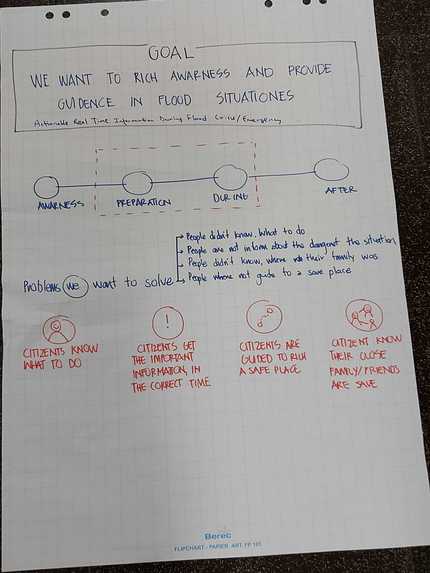 GOAL
WE WANT TO RICH AWARNESS AND PROVIDE
GUIDENCE IN FLOOD SITUATIONES
Actionable Real Time Information During Flood Crisis/Emergency
AWARNESS
PREPARATION
DURING
AFTER
People didn't know, What to do
People are not inform about the danger of the situation
People didn't know, where their family was
Problems we want to solve
People where not guide to a save place
!
CITIZENS KNOW
WHAT TO DO
CITIZENS GET
THE IMPORTANT
INFORMATION, IN
THE CORRECT TIME
CITIZENS ARE
GUIDED TO RICH
A SAFE PLACE
CITIZENT KNOW
THEIR CLOSE
FAMILY/FRIENDS
ARE SAVE
Berec
FLIPCHART - PAPIER ART. FP 101